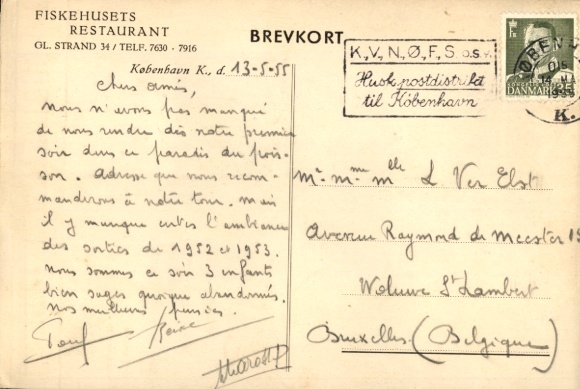 FISKEHUSETS
RESTAURANT
GL. STRAND 34 / TELF. 7630 - 7916
BREVKORT
København K., d. 13-5-55
Chers amis,
nous n'avons pas manqué
de nous rendre dès notre premier
soir dans ce paradis du pois-
son. Adresse que nous recom-
manderons à notre tour. Mais
il y manque certes l'ambiance
des sorties de 1952 et 1953.
Nous sommes ce soir 3 enfants
bien sages quoique abandonnés.
Nos meilleures pensées.
K,V,N,Ø,F,S
Husk postdistrikt
til København
KØBENHAVN
K.
DANMARK
25
Mr Mme Mlle L Ver Elst
Avenue Raymond de Meester
Woluwe St Lambert
Bruxelles (Belgique)